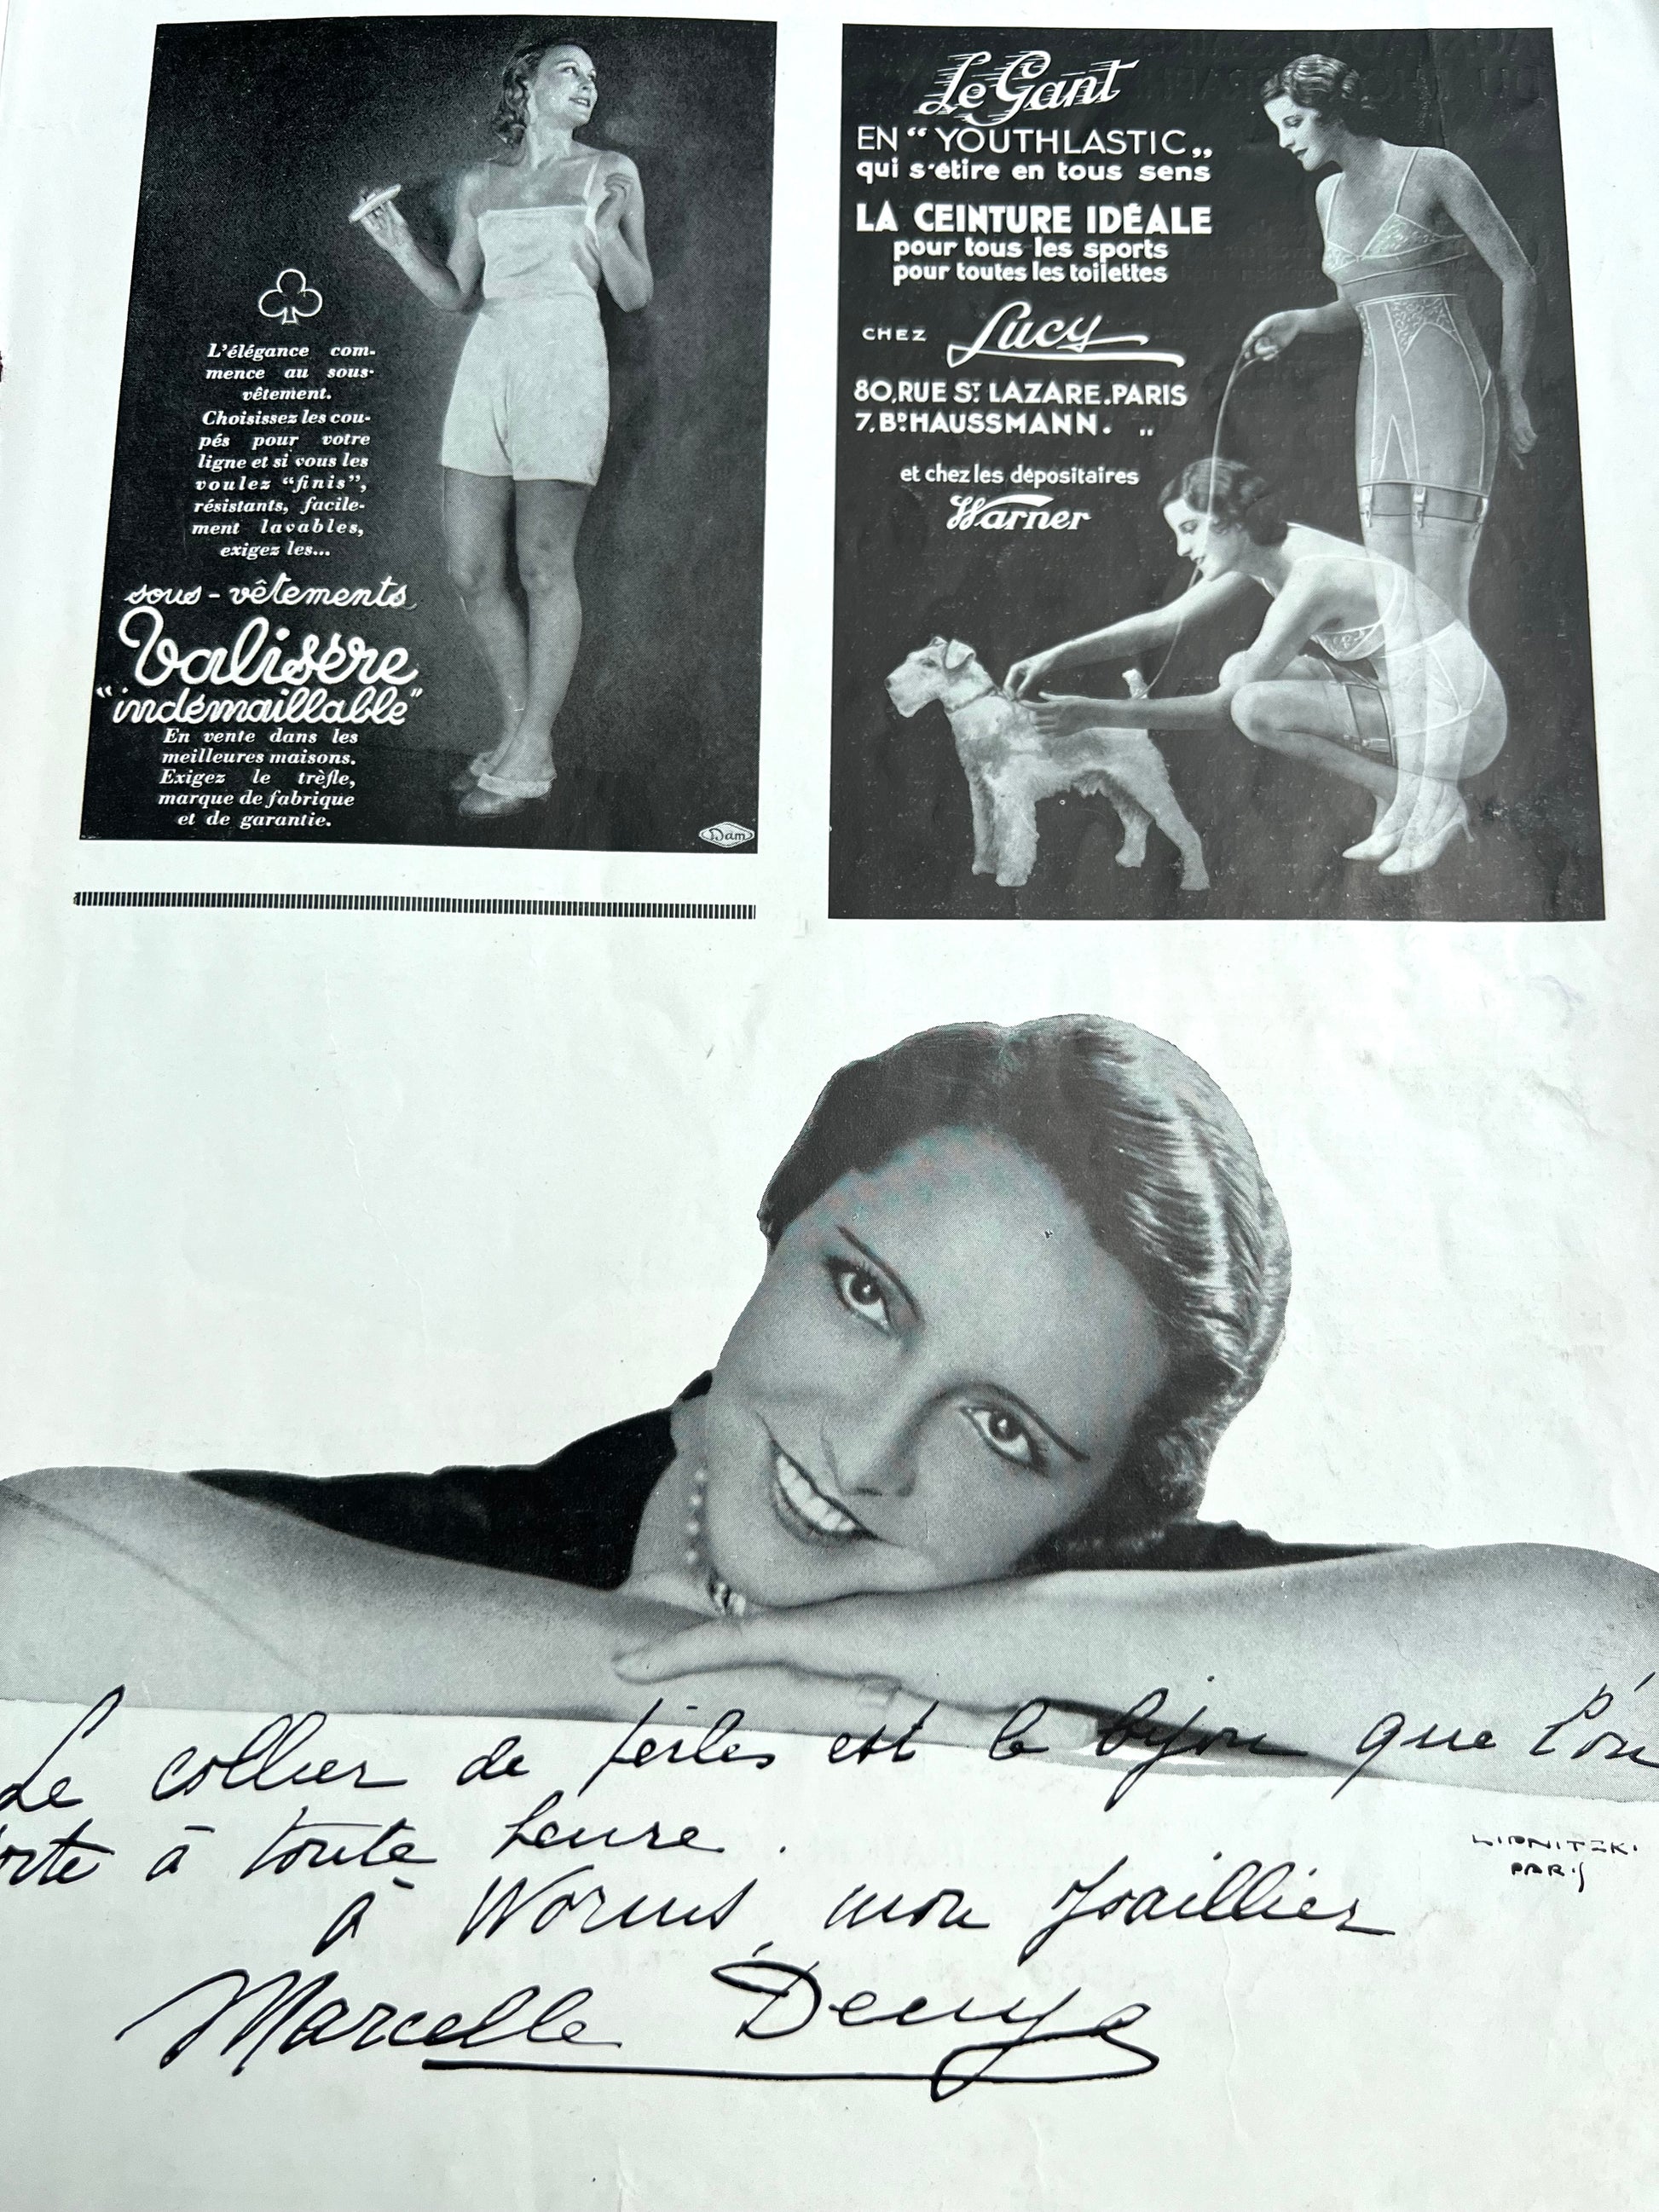 L'élégance com-
mence au sous-
vêtement.
Choisissez les cou-
pés pour votre
ligne et si vous les
voulez “finis”,
résistants, facile-
ment lavables,
exigez les...
sous-vêtements
Valisère
“indémaillable”
En vente dans les
meilleures maisons.
Exigez le trèfle,
marque de fabrique
et de garantie.
Dam
Le Gant
EN “YOUTHLASTIC„
qui s'étire en tous sens
LA CEINTURE IDÉALE
pour tous les sports
pour toutes les toilettes
CHEZ Lucy
80, RUE ST LAZARE. PARIS
7, BD HAUSSMANN. „
et chez les dépositaires
Warner
Le collier de perles est le bijou que l'on
orte à toute heure.
à Worms, mon Joaillier
Marcelle Denya
LIPNITZKI
PARIS